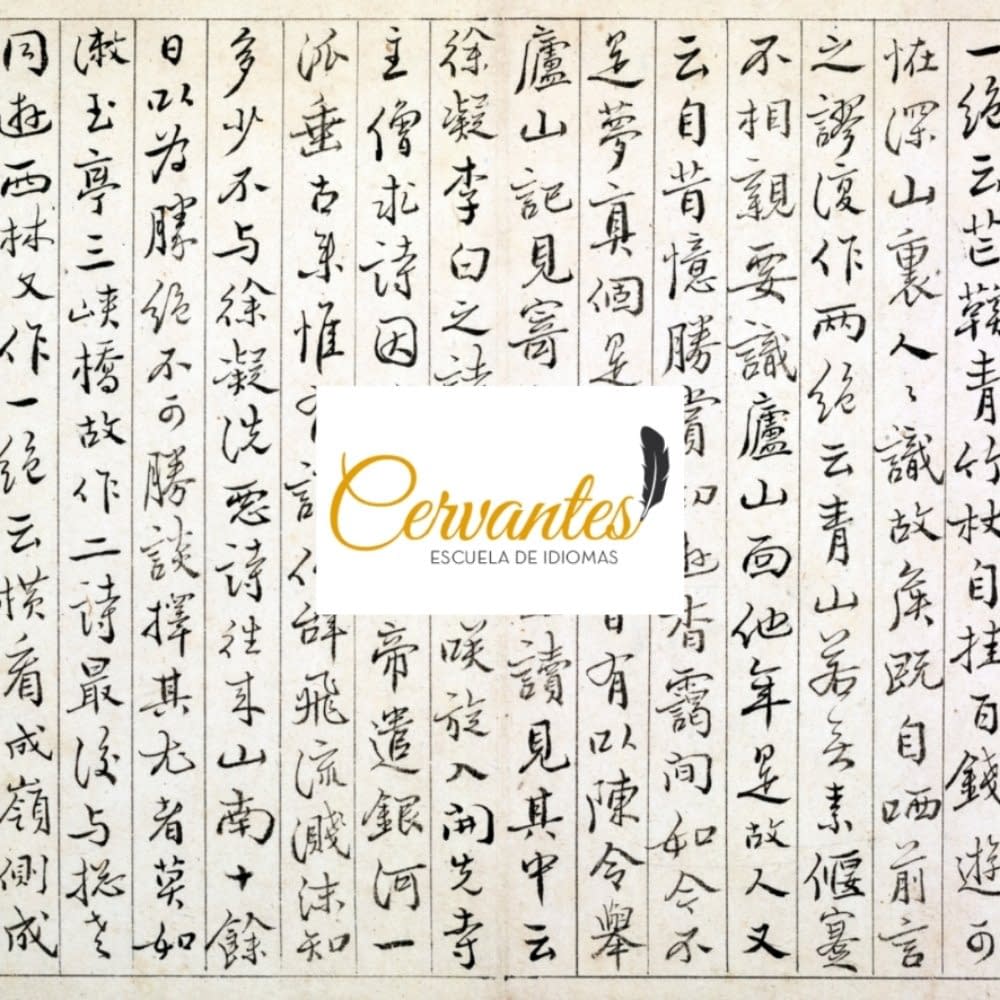 一絕云芒鞋青竹杖自挂百錢遊可
恠深山裏人〻識故矦既自哂前言
之謬復作兩絕云青山若無素偃蹇
不相親要識廬山面他年是故人又
云自昔憶勝賞初遊杳靄間如今不
是夢真個是有以陳令舉
廬山記見寄且讀見其中云
徐凝李白之詩咲旋入開先寺
主僧求詩因帝遣銀河一
派垂古來惟有辭飛流濺沫知
多少不与徐凝洗惡詩往來山南十餘
日以為勝絕不可勝談擇其尤者莫如
漱玉亭三峽橋故作二詩最後与揔老
同遊西林又作一絕云橫看成嶺側成
Cervantes
ESCUELA DE IDIOMAS